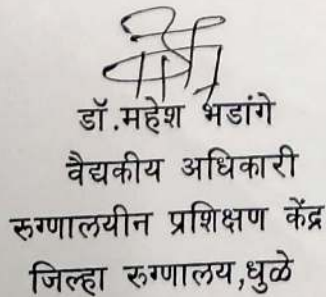 डॉ.महेश भडांगे
वैद्यकीय अधिकारी
रुग्णालयीन प्रशिक्षण केंद्र
जिल्हा रुग्णालय,धुळे